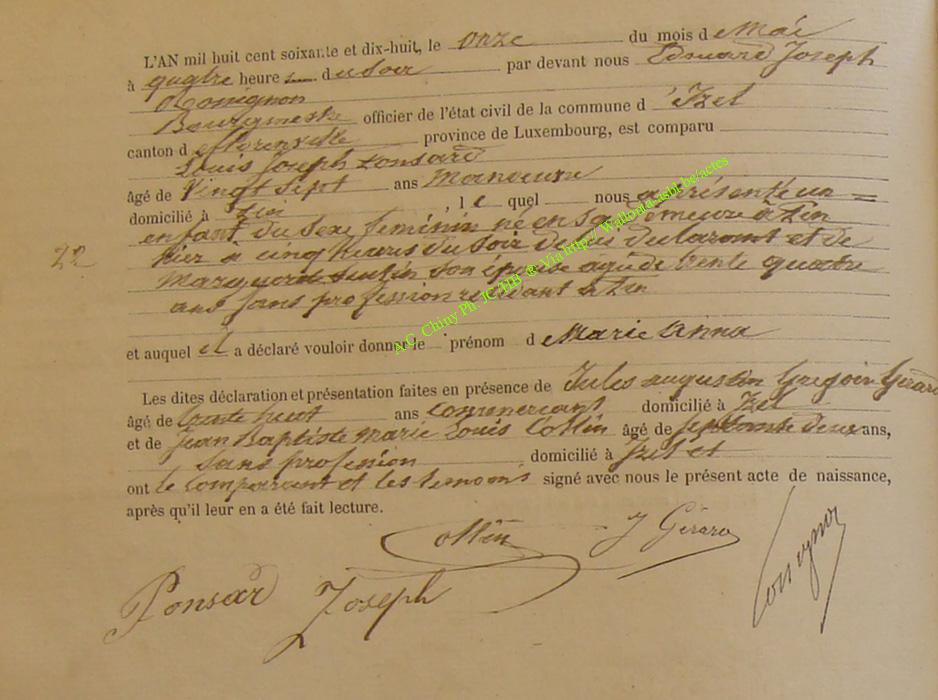 L'AN mil huit cent soixante et dix-huit, le onze du mois de Mai
à quatre heure du Soir par devant nous Edouard Joseph
Rossignon
Bourgmestre officier de l'état civil de la commune d'Izel
canton de florenville province de Luxembourg, est comparu
Louis Joseph Ponsard
âgé de Vingt Sept ans Manoeuvre
domicilié à Izel, le quel nous a présenté un
enfant du Sexe féminin né en Sa demeure à
hier a cinq heures du Soir de lui déclarant et de
son épouse agée de trente quatre
ans sans profession résidant à
22
et auquel il a déclaré vouloir donner le prénom de Marie Anna
Les dites déclaration et présentation faites en présence de Jules augustin Gregoir Gérard
âgé de trente huit ans commercant domicilié à Izel
et de Jean Baptiste Marie Louis Collin âgé de Septante deux ans,
Sans profession domicilié à Izel et
ont le Comparant et les temoins signé avec nous le présent acte de naissance,
après qu'il leur en a été fait lecture.
Collin J Gérard
Ponsard Joseph
A.C. Chiny Ph. JC/HB @ Via http://Wallonia-asbl.be/actes